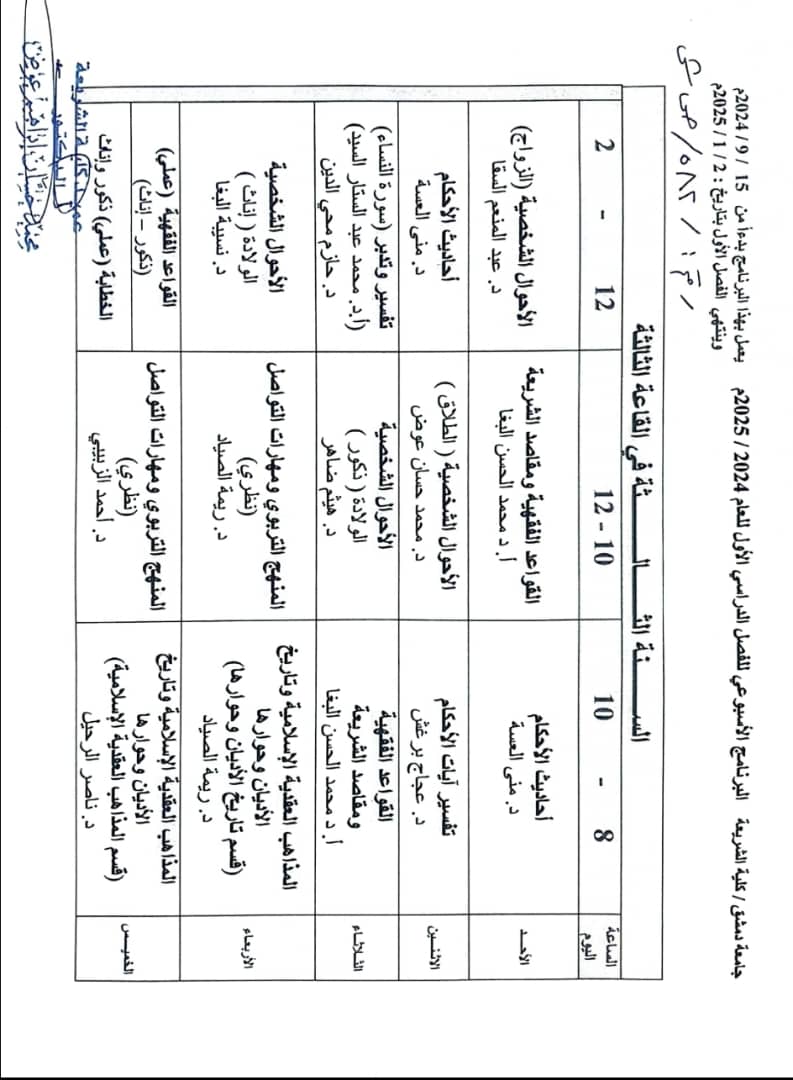 جامعة دمشق / كلية الشريعة البرنامج الأسبوعي للفصل الدراسي الأول للعام 2024 / 2025م يعمل بهذا البرنامج بدءا من 15 / 9 /2024م
وينتهي الفصل الأول بتاريخ : 2 / 1 /2025م
الســــنة الثــــالــــــثة في القاعة الثالثة
الساعة
اليوم
8 - 10
10 - 12
12 - 2
الأحــد
أحاديث الأحكام
د. منى العسة
القواعد الفقهية ومقاصد الشريعة
أ. د محمد الحسن البغا
الأحوال الشخصية (الزواج)
د. عبد المنعم السقا
الاثنـين
تفسير آيات الأحكام
د. عجاج برغش
الأحوال الشخصية ( الطلاق )
د. محمد حسان عوض
أحاديث الأحكام
د. منى العسة
الثـلاثـاء
القواعد الفقهية
ومقاصد الشريعة
أ. د محمد الحسن البغا
الأحوال الشخصية
الولادة ( ذكور )
د. هيثم ضاهر
تفسير وتدبر (سورة النساء)
(أ.د. محمد عبد الستار السيد)
د. حازم محي الدين
الأربعـاء
المذاهب العقدية الإسلامية وتاريخ
الأديان وحوارها
(قسم تاريخ الأديان وحوارها)
د. ريمة الصياد
المنهج التربوي ومهارات التواصل
(نظري)
د. ريمة الصياد
الأحوال الشخصية
الولادة ( إناث )
د. نسيبة البغا
الخميـس
المذاهب العقدية الإسلامية وتاريخ
الأديان وحوارها
(قسم المذاهب العقدية الإسلامية)
د. ناصر الرحيل
المنهج التربوي ومهارات التواصل
(نظري)
د. أحمد الزبيبي
القواعد الفقهية (عملي)
(ذكور – إناث)
الخطابة (عملي) ذكور وإناث
عميد كلية الشريعة